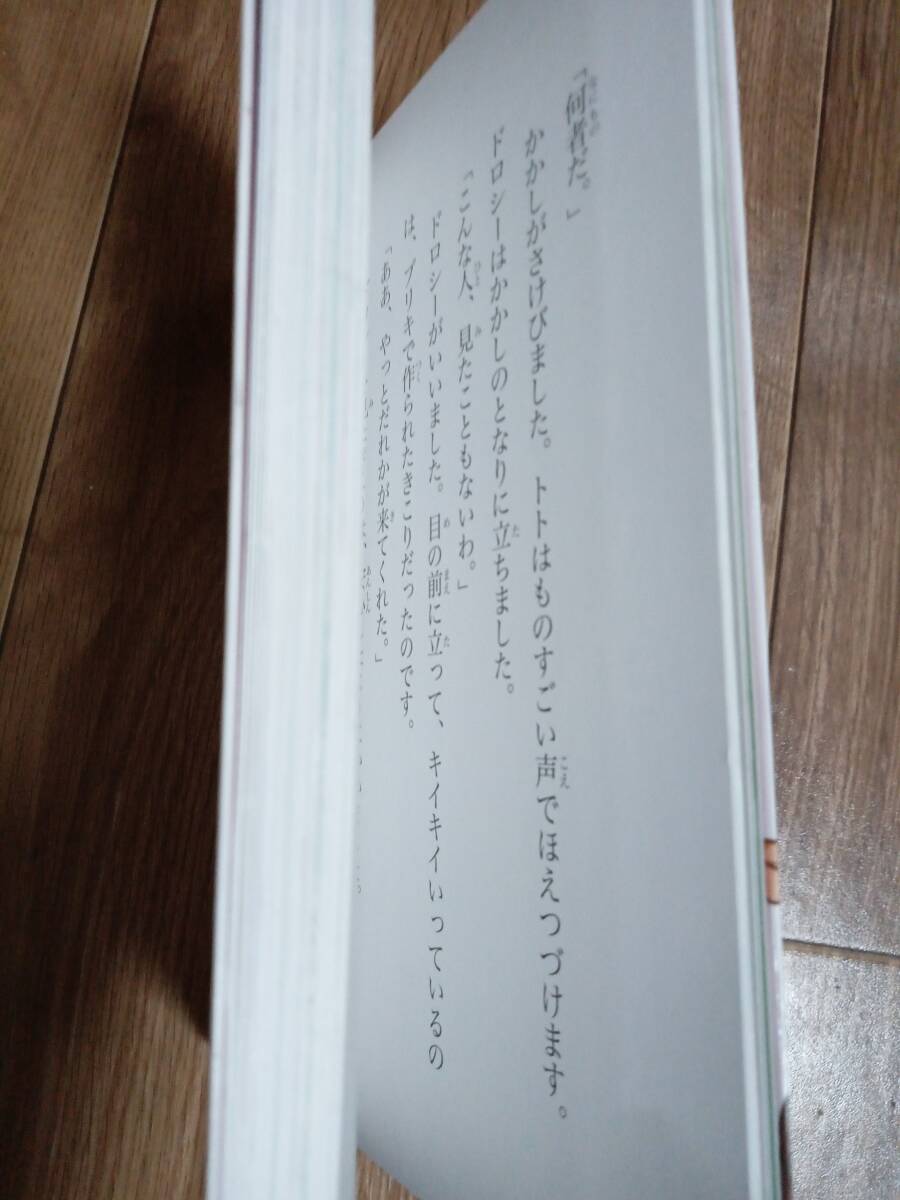 「何者だ。」
かかしがさけびました。トトはものすごい声でほえつづけます。
ドロシーはかかしのとなりに立ちました。
「こんな人、見たこともないわ。」
ドロシーがいいました。目の前に立って、キイキイいっているの
は、ブリキで作られたきこりだったのです。
「ああ、やっとだれかが来てくれた。」